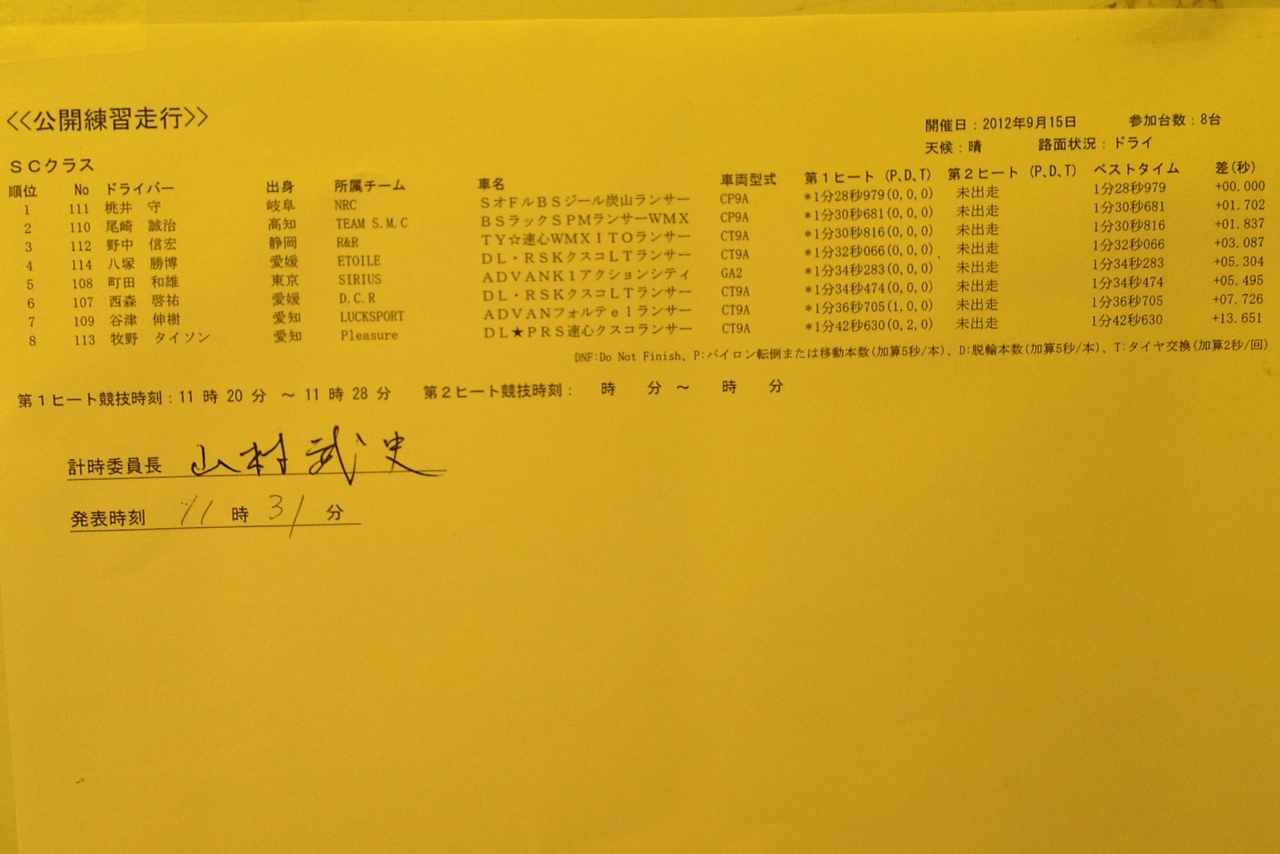 <<公開練習走行>>
開催日：2012年9月15日 参加台数：8台
天候：晴 路面状況：ドライ
ＳＣクラス
順位 No ドライバー 出身 所属チーム 車名 車両型式 第１ヒート (P,D,T) 第２ヒート (P,D,T) ベストタイム 差(秒)
1 111 桃井 守 岐阜 NRC ＳオＦルＢＳジール炭山ランサー CP9A *1分28秒979(0,0,0) 未出走 1分28秒979 +00.000
2 110 尾崎 誠治 高知 TEAM S.M.C ＢＳラックＳＰＭランサーＷＭＸ CP9A *1分30秒681(0,0,0) 未出走 1分30秒681 +01.702
3 112 野中 信宏 静岡 R&R ＴＹ☆速心ＷＭＸＩＴＯランサー CT9A *1分30秒816(0,0,0) 未出走 1分30秒816 +01.837
4 114 八塚 勝博 愛媛 ETOILE ＤＬ・ＲＳＫクスコＬＴランサー CT9A *1分32秒066(0,0,0) 未出走 1分32秒066 +03.087
5 108 町田 和雄 東京 SIRIUS ＡＤＶＡＮＫ１アクションシティ GA2 *1分34秒283(0,0,0) 未出走 1分34秒283 +05.304
6 107 西森 啓祐 愛媛 D.C.R ＤＬ・ＲＳＫクスコＬＴランサー CT9A *1分34秒474(0,0,0) 未出走 1分34秒474 +05.495
7 109 谷津 伸樹 愛知 LUCKSPORT ＡＤＶＡＮフォルテｅ１ランサー CT9A *1分36秒705(1,0,0) 未出走 1分36秒705 +07.726
8 113 牧野 タイソン 愛知 Pleasure ＤＬ★ＰＲＳ速心クスコランサー CT9A *1分42秒630(0,2,0) 未出走 1分42秒630 +13.651
DNF:Do Not Finish、P:パイロン転倒または移動本数(加算5秒/本)、D:脱輪本数(加算5秒/本)、T:タイヤ交換(加算2秒/回)
第１ヒート競技時刻：11 時 20 分 ～ 11 時 28 分 第２ヒート競技時刻： 時 分 ～ 時 分
計時委員長 山村武史
発表時刻 11 時 31 分